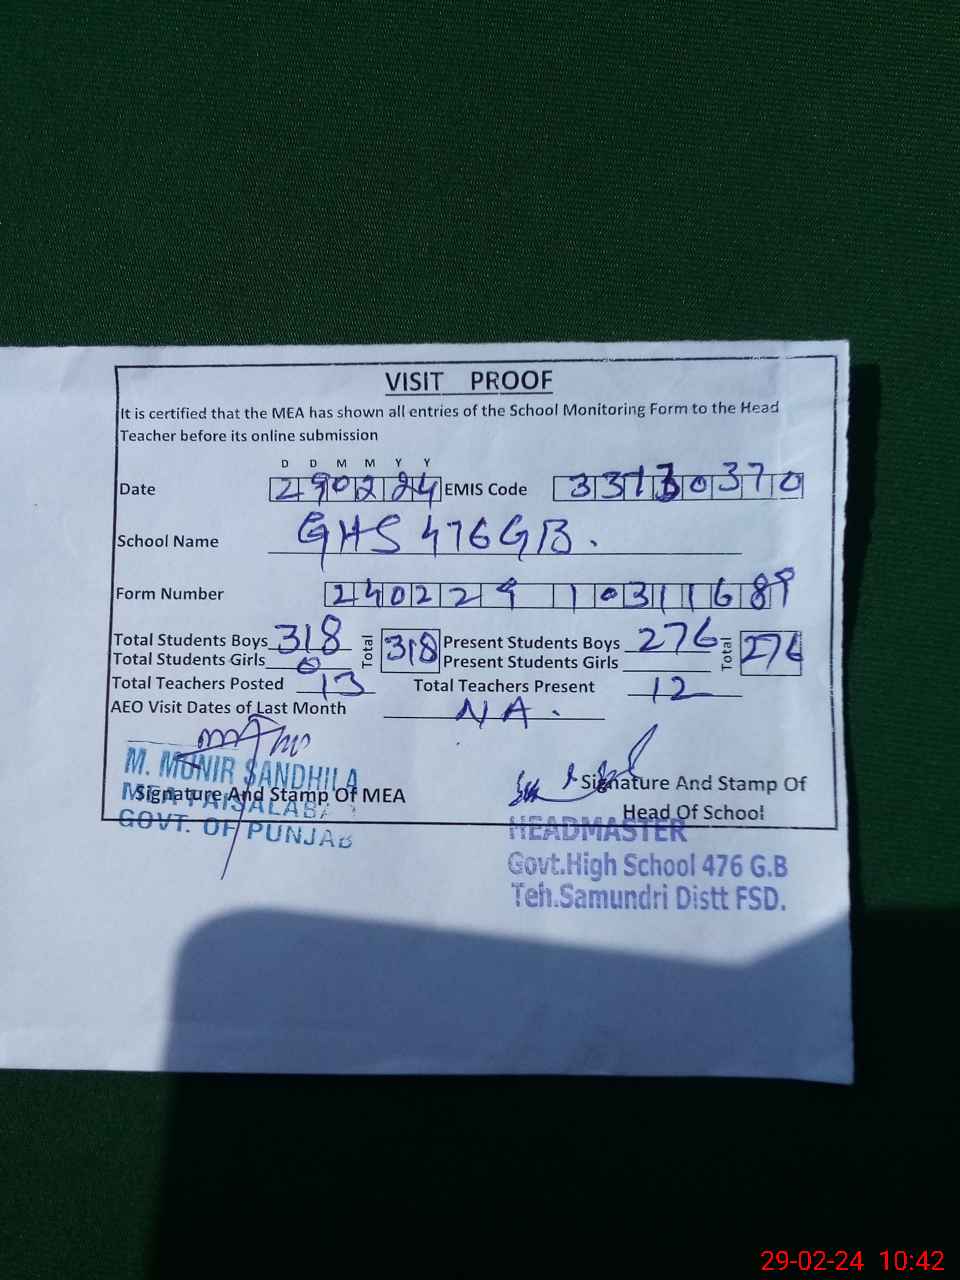 VISIT PROOF
It is certified that the MEA has shown all entries of the School Monitoring Form to the Head
Teacher before its online submission
D D M M Y Y
Date 290224 EMIS Code 33130370
School Name GHS 476GB.
Form Number 240229 10311689
Total Students Boys 318 Total 318 Present Students Boys 276 Total 276
Total Students Girls 0 Present Students Girls
Total Teachers Posted 13 Total Teachers Present 12
AEO Visit Dates of Last Month NA.
M. MUNIR SANDHILA
MEA FAISALABAD
GOVT. OF PUNJAB
Signature And Stamp Of MEA
Signature And Stamp Of
Head Of School
HEADMASTER
Govt.High School 476 G.B
Teh.Samundri Distt FSD.
29-02-24 10:42